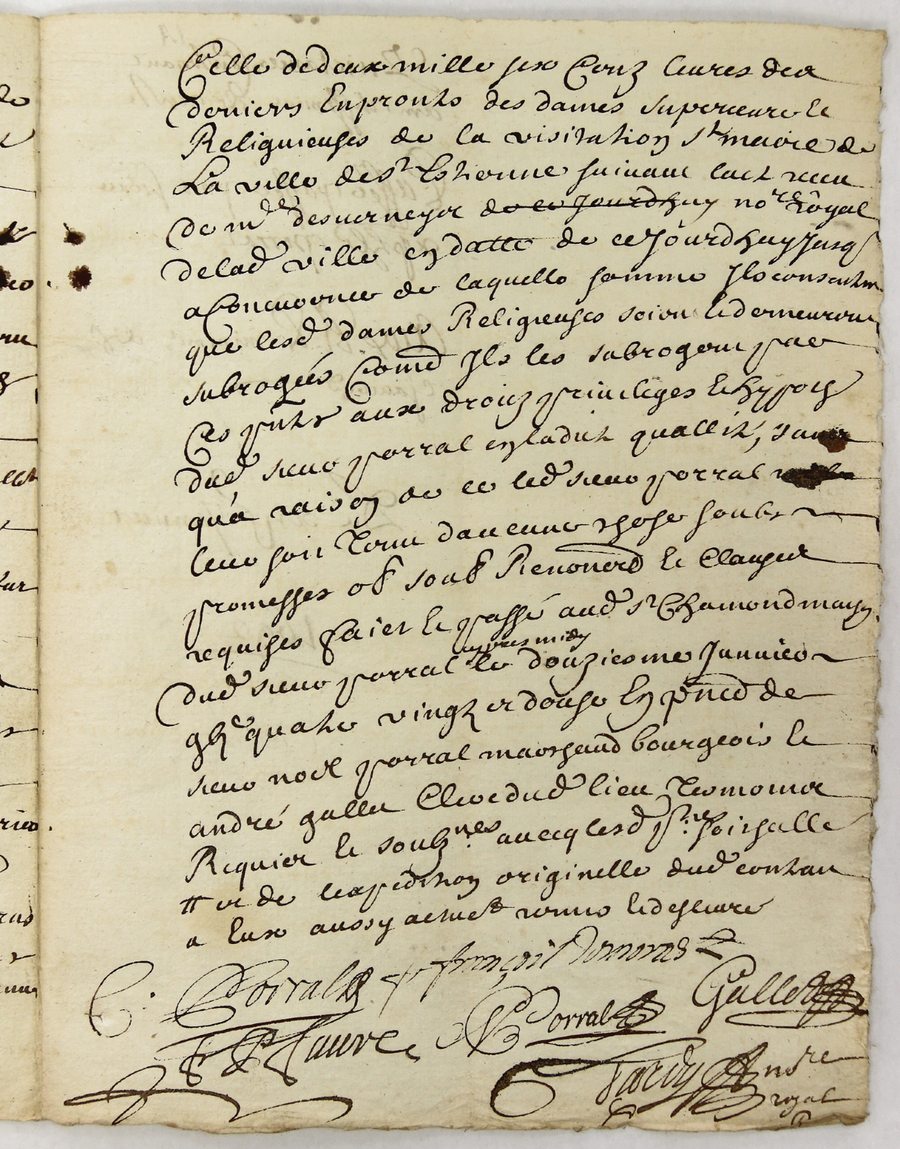 Celle de deux mille six Centz livres des
derniers Enpronts des dames superieure Et
Religuieuses de la visitation Ste marie de
La ville de St Estienne suivant lact receu
de me desverneyor de ce Jourdhuy nore Royal
de lad ville en datte de ce Jourdhuy Jusq
a Concurence de laquelle somme Ils consentent
que lesd dames Religieuses soient Et demeurent
subrogées Comme Ils les subrogent par
Ces pntes aux droitz privileges Et hypoq
dud sieur porral en ladite quallité, sans
qua raison de ce led sieur porral
leur soit Tenu daucune chose soubz
promesses ob soub Renond Et Clauses
requises faict Et passé aud St Chamond maison
apres midy
dud sieur porral le douzieme Janvier
quatre vingtz et douse En pnce de
sieur noel porral marchand bourgeois Et
andré gallet Clerc dud lieu Tesmoins
Requier Et soubznes avecq lesd
et de lexpedition originelle dud contrat
a Eux aussy
C. Porral françois
F P Favre Porral Gallet
Tardy nore
royal